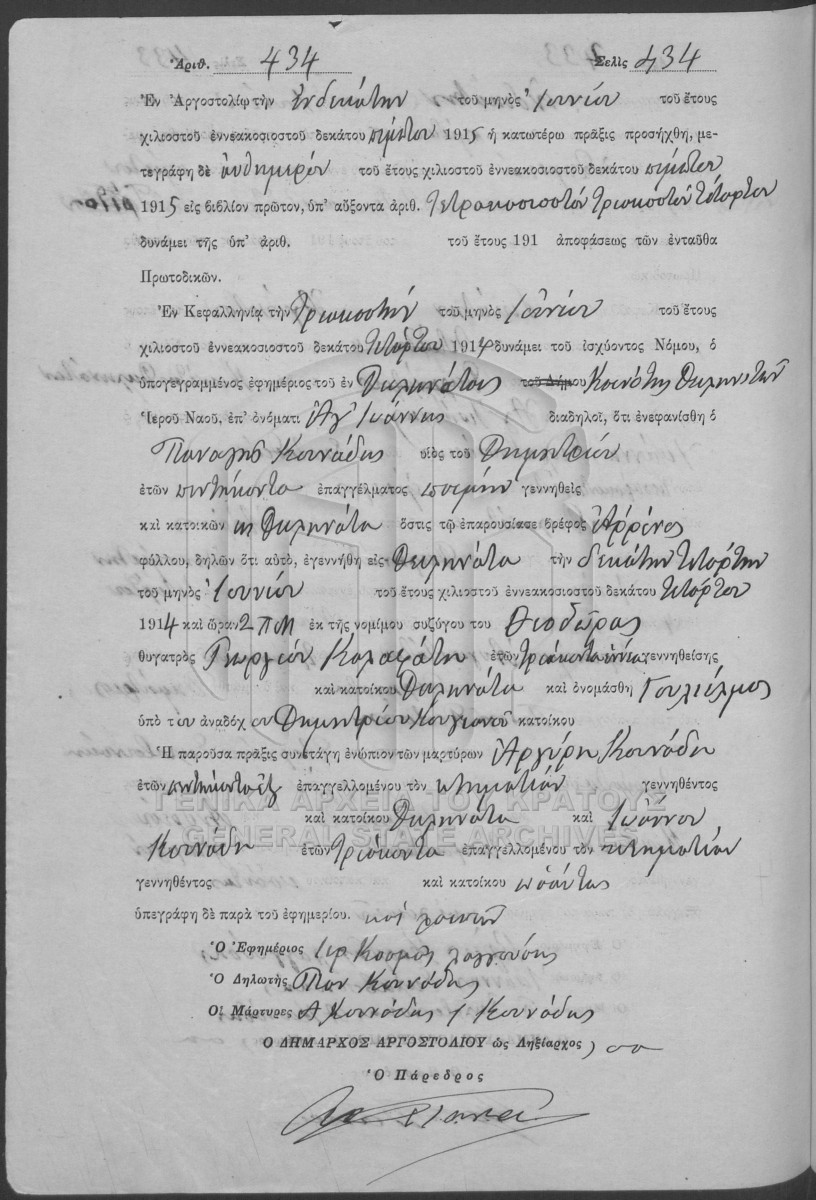 Ἀριθ. 434 Σελὶς 434
Ἐν Ἀργοστολίῳ τὴν ἑνδεκάτην τοῦ μηνὸς Ἰουνίου τοῦ ἔτους
χιλιοστοῦ ἐννεακοσιοστοῦ δεκάτου πέμπτου 1915 ἡ κατωτέρω πρᾶξις προσήχθη, με-
τεγράφη δὲ αὐθημερόν τοῦ ἔτους χιλιοστοῦ ἐννεακοσιοστοῦ δεκάτου πέμπτου
1915 εἰς βιβλίον πρῶτον, ὑπ' αὔξοντα ἀριθ. Τετρακοσιοστόν τριακοστόν τέταρτον
δυνάμει τῆς ὑπ' ἀριθ. τοῦ ἔτους 191 ἀποφάσεως τῶν ἐνταῦθα
Πρωτοδικῶν.
Ἐν Κεφαλληνίᾳ τὴν τριακοστήν τοῦ μηνὸς Ἰουνίου τοῦ ἔτους
χιλιοστοῦ ἐννεακοσιοστοῦ δεκάτου τετάρτου 1914 δυνάμει τοῦ ἰσχύοντος Νόμου, ὁ
ὑπογεγραμμένος ἐφημέριος τοῦ ἐν Διλινάτοις τοῦ Δήμου Κοινότης Διλινατῶν
Ἱεροῦ Ναοῦ, ἐπ' ὀνόματι Ἁγ Ἰωάννης διαδηλοῖ, ὅτι ἐνεφανίσθη ὁ
Παναγῆς Κουνάδης υἱὸς τοῦ Δημητρίου
ἐτῶν πεντήκοντα ἐπαγγέλματος ποιμήν γεννηθεὶς
καὶ κατοικῶν εἰς Διλινάτα ὅστις τῷ ἐπαρουσίασε βρέφος ἄῤῥενος
φύλλου, δηλῶν ὅτι αὐτό, ἐγεννήθη εἰς Διλινάτα τὴν δεκάτην τετάρτην
τοῦ μηνὸς Ἰουνίου τοῦ ἔτους χιλιοστοῦ ἐννεακοσιοστοῦ δεκάτου τετάρτου
1914 καὶ ὥραν 2 π μ ἐκ τῆς νομίμου συζύγου του Θεοδώρας
θυγατρὸς Γεωργίου Καλαφάτη ἐτῶν τριάκοντα ἐννέα γεννηθείσης
καὶ κατοίκου Διλινάτα καὶ ὀνομάσθη Γουλιέλμος
ὑπὸ τοῦ ἀναδόχου Δημητρίου κατοίκου
Ἡ παροῦσα πρᾶξις συνετάγη ἐνώπιον τῶν μαρτύρων Ἀργύρη Κουνάδη
ἐτῶν πεντήκοντα ἕξ ἐπαγγελλομένου τὸν κτηματίαν γεννηθέντος
καὶ κατοίκου Διλινάτα καὶ Ἰωάννου
Κουνάδη ἐτῶν τριάκοντα ἐπαγγελλομένου τὸν κτηματίαν
γεννηθέντος καὶ κατοίκου
ὑπεγράφη δὲ παρὰ τοῦ ἐφημερίου. καί λοιπῶν
Ὁ Ἐφημέριος Ἱερ Κοσμᾶς
Ὁ Δηλωτὴς Παν Κουνάδης
Οἱ Μάρτυρες Α Κουνάδης Ι Κουνάδης
Ὁ ΔΗΜΑΡΧΟΣ ΑΡΓΟΣΤΟΛΙΟΥ ὡς Ληξίαρχος
Ὁ Πάρεδρος
ΓΕΝΙΚΑ ΑΡΧΕΙΑ ΤΟΥ ΚΡΑΤΟΥΣ
GENERAL STATE ARCHIVES